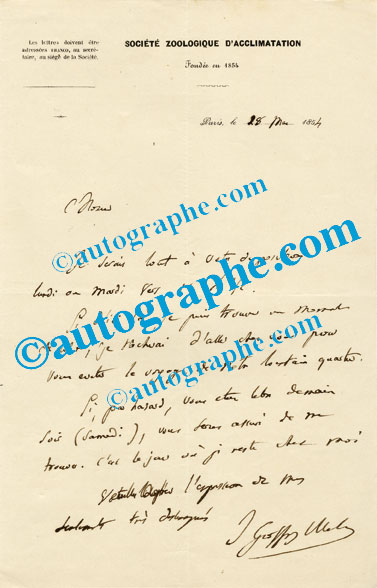 Les lettres doivent être
adressées FRANCO, au secré-
taire, au siége de la Société.
SOCIÉTÉ ZOOLOGIQUE D'ACCLIMATATION
Fondée en 1854
Paris, le 25 Mai 1854
©autographe.com
Je serai tout à votre disposition
lundi ou mardi vers
©autographe.com
je puis trouver un moment
je tâcherai d'aller chez vous pour
vous éviter le voyage de votre lointain quartier.
©autographe.com
Si, par hasard, vous étiez libre demain
soir (samedi), vous seriez assuré de me
trouver. C'est le jour où je reste chez moi
Veuillez l'expression de mes
sentiments très distingués
I Geoffroy St Hilaire